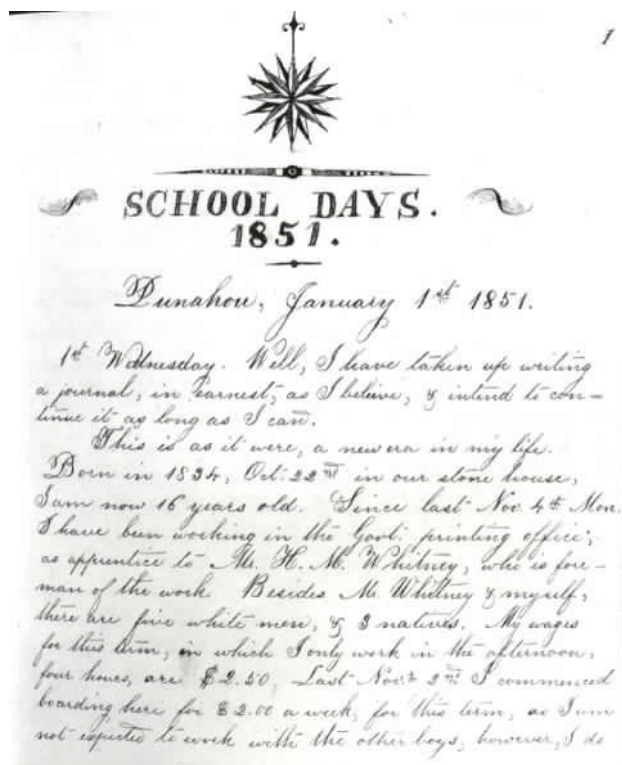 1
SCHOOL DAYS.
1851.
Punahou, January 1st 1851.
1st Wednesday. Well, I have taken up writing
a journal, in earnest, as I believe, & intend to con-
tinue it as long as I can.
This is as it were, a new era in my life.
Born in 1834, Oct. 22nd in our stone house,
I am now 16 years old. Since last Nov. 4th Mon.
I have been working in the Govt. printing office,
as apprentice to Mr. H. M. Whitney, who is fore-
man of the work. Besides Mr. Whitney & myself,
there are five white men, & 3 natives. My wages
for this term, in which I only work in the afternoon,
four hours, are $2.50, Last Nov. 2nd I commenced
boarding here for $2.00 a week, for this term, as I am
not expected to work with the other boys, however, I do